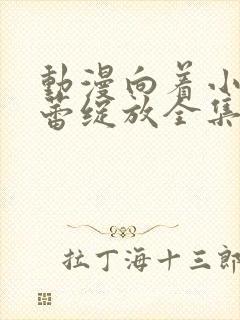 動漫向着小
蕾绽放全集
拉丁海十三郎